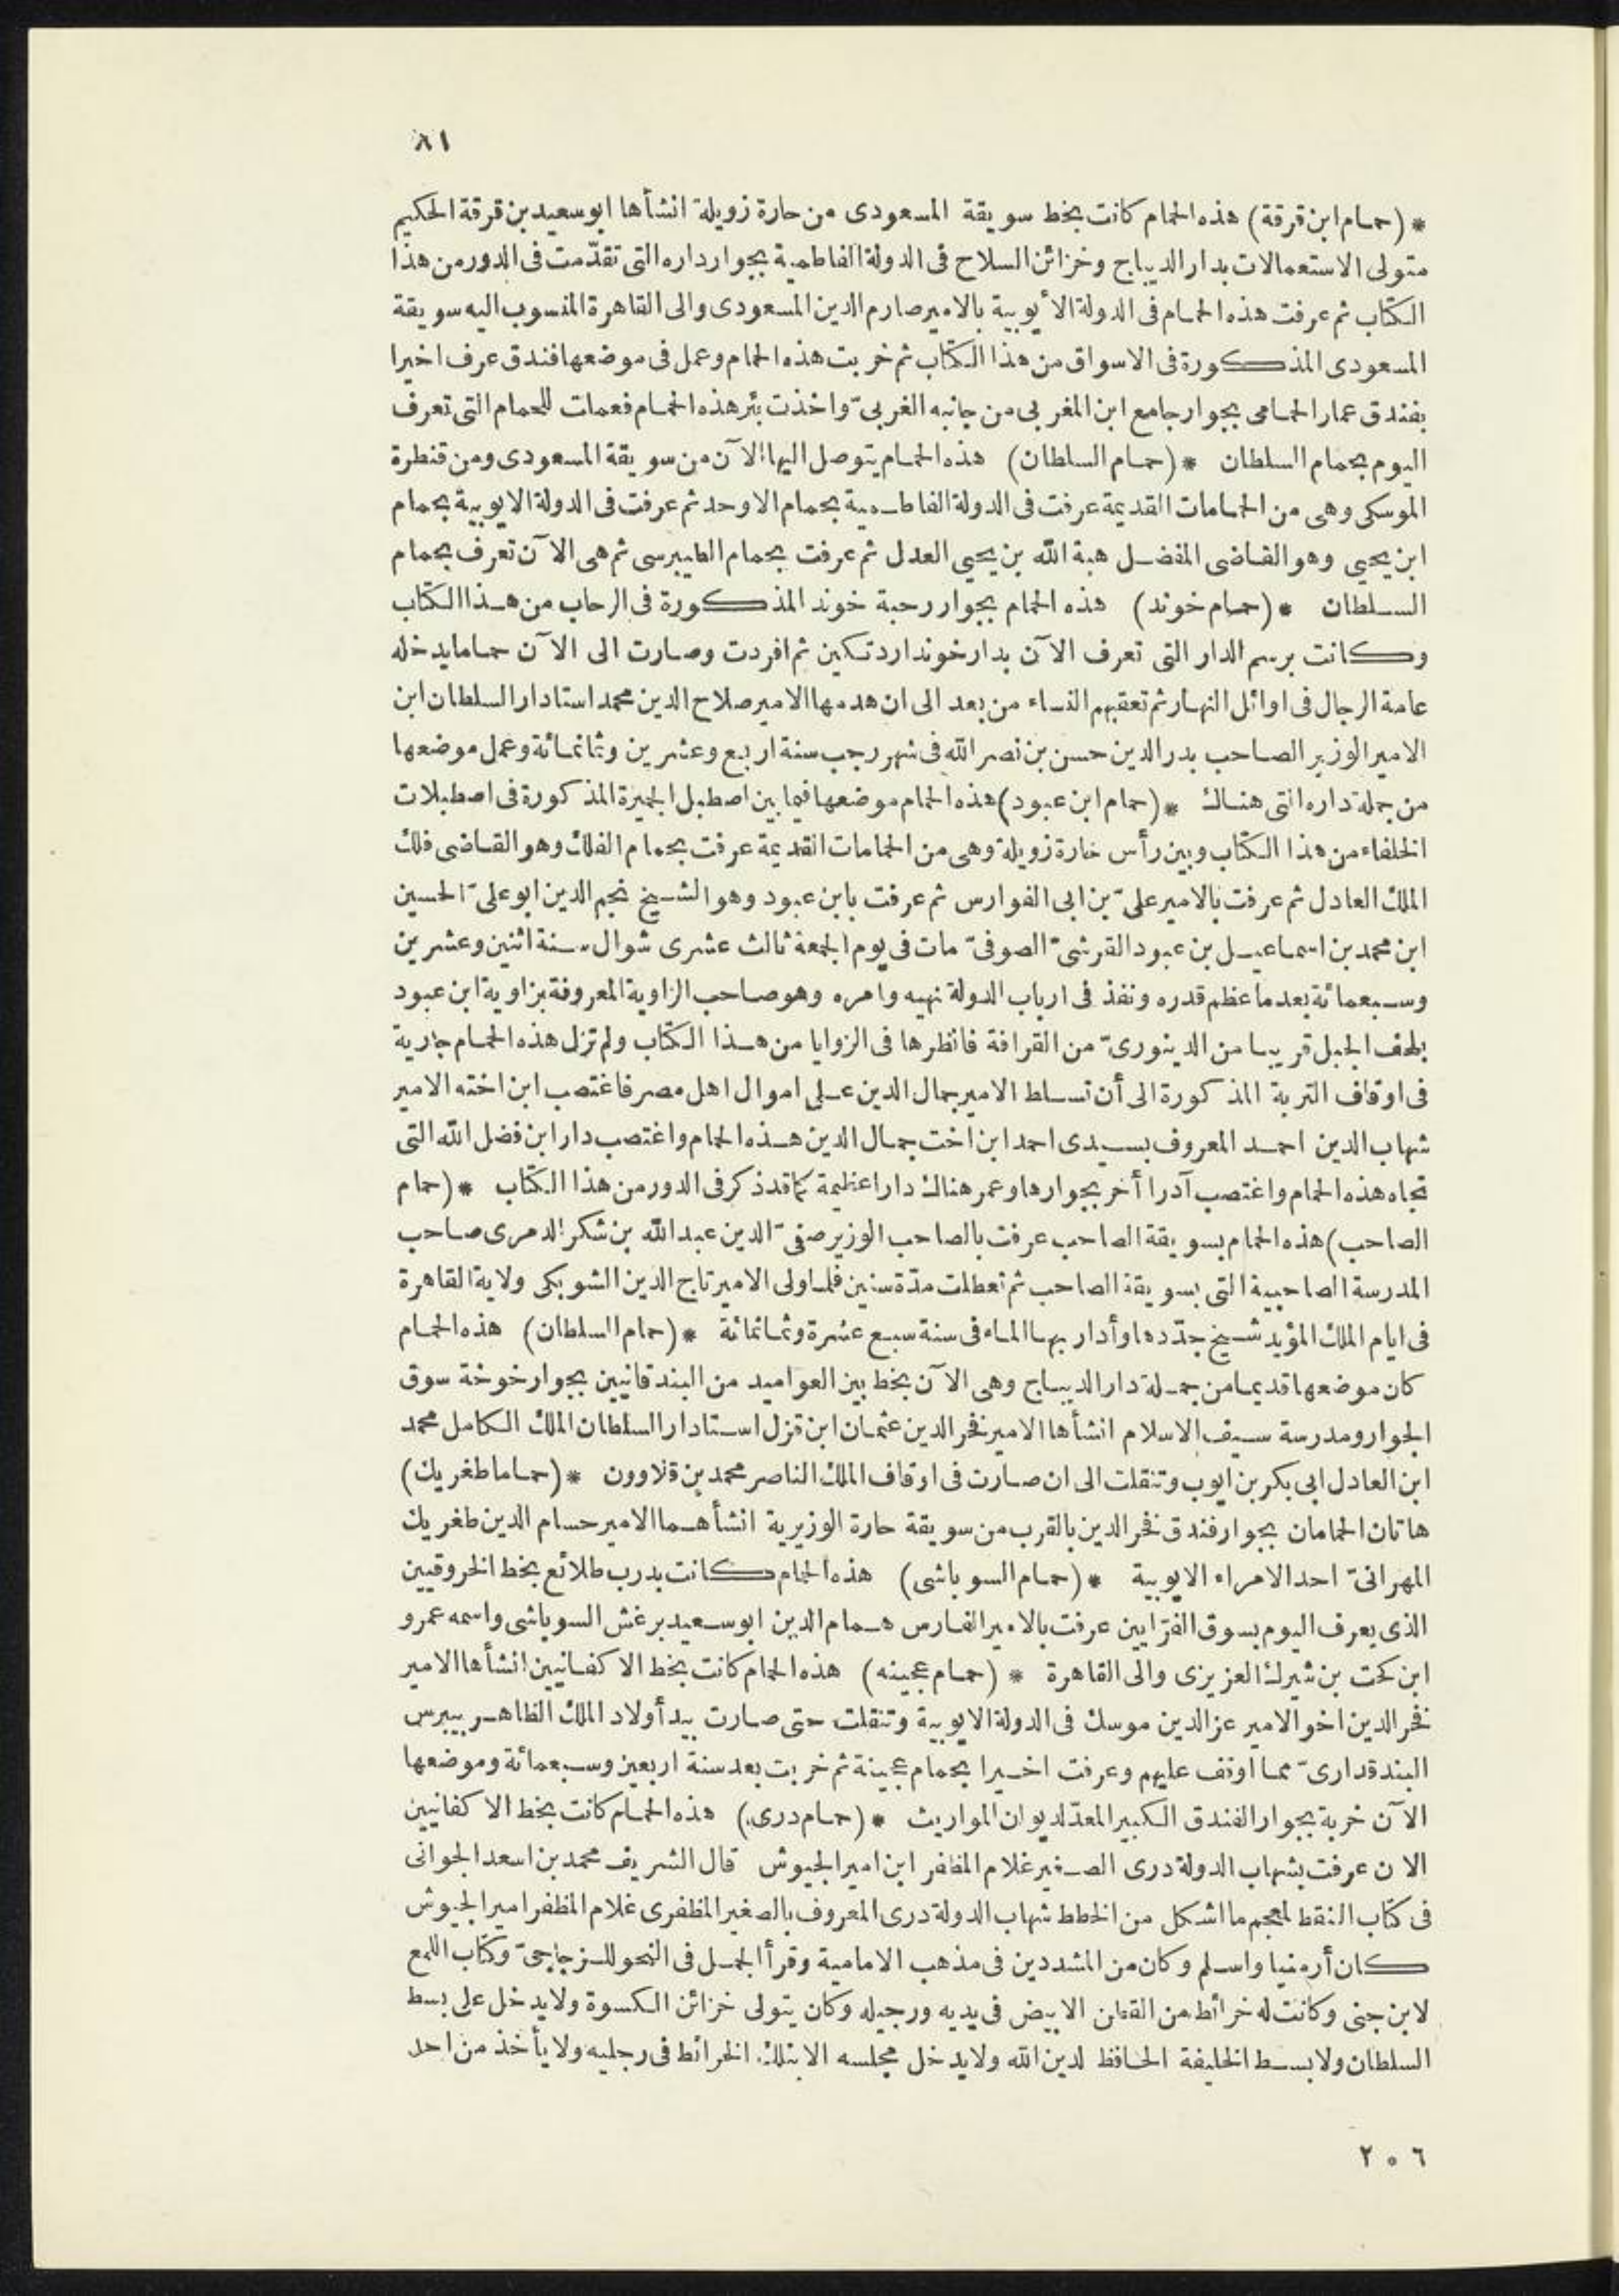 ٨١
* (حمام ابن قرقة) هذه الحمام كانت بخط سويقة المسعودى من حارة زويلة انشأها ابو سعيد بن قرقة الحكيم
متولى الاستعمالات بدار الديباج وخزائن السلاح فى الدولة الفاطمية بجوار داره التى تقدّمت فى الدور من هذا
الكتاب ثم عرفت هذه الحمام فى الدولة الأيوبية بالامير صارم الدين المسعودى والى القاهرة المنسوب اليه سويقة
المسعودى المذكورة فى الاسواق من هذا الكتاب ثم خربت هذه الحمام وعمل فى موضعها فندق عرف اخيرا
بفندق عمار الحمامى بجوار جامع ابن المغربى من جانبه الغربىّ واخذت بئر هذه الحمام فعملت للحمام التى تعرف
اليوم بحمام السلطان * (حمام السلطان) هذه الحمام يتوصل اليها الآن من سويقة المسعودى ومن قنطرة
الموسكى وهى من الحمامات القديمة عرفت فى الدولة الفاطمية بحمام الاوحد ثم عرفت فى الدولة الايوبية بحمام
ابن يحيى وهو القاضى المفضل هبة الله بن يحيى العدل ثم عرفت بحمام الطيبرسى ثم هى الآن تعرف بحمام
السلطان * (حمام خوند) هذه الحمام بجوار رحبة خوند المذكورة فى الرحاب من هذا الكتاب
وكانت برسم الدار التى تعرف الآن بدار خوند اردتكين ثم افردت وصارت الى الآن حماما يدخله
عامة الرجال فى اوائل النهار ثم تعقبهم النساء من بعد الى ان هدمها الامير صلاح الدين محمد استادار السلطان ابن
الامير الوزير الصاحب بدر الدين حسن بن نصر الله فى شهر رجب سنة اربع وعشرين وثمانمائة وعمل موضعها
من جملة داره التى هناك * (حمام ابن عبود) هذه الحمام موضعها فيما بين اصطبل الجميزة المذكورة فى اصطبلات
الخلفاء من هذا الكتاب وبين رأس حارة زويلة وهى من الحمامات القديمة عرفت بحمام الفلك وهو القاضى فلك
الملك العادل ثم عرفت بالامير علىّ بن ابى الفوارس ثم عرفت بابن عبود وهو الشيخ نجم الدين ابو علىّ الحسين
ابن محمد بن اسماعيل بن عبود القرشىّ الصوفىّ مات فى يوم الجمعة ثالث عشرى شوال سنة اثنين وعشرين
وسبعمائة بعد ما عظم قدره ونفذ فى ارباب الدولة نهيه وامره وهو صاحب الزاوية المعروفة بزاوية ابن عبود
بلحف الجبل قريبا من الدينورىّ من القرافة فانظرها فى الزوايا من هذا الكتاب ولم تزل هذه الحمام جارية
فى اوقاف التربة المذكورة الى أن تسلط الامير جمال الدين على اموال اهل مصر فاغتصب ابن اخته الامير
شهاب الدين احمد المعروف بسيدى احمد ابن اخت جمال الدين هذه الحمام واغتصب دار ابن فضل الله التى
تجاه هذه الحمام واغتصب آدرا أخر بجوارها وعمر هناك دارا عظيمة كما قد ذكر فى الدور من هذا الكتاب * (حمام
الصاحب) هذه الحمام بسويقة الصاحب عرفت بالصاحب الوزير صفىّ الدين عبد الله بن شكر الدمرى صاحب
المدرسة الصاحبية التى بسويقة الصاحب ثم تعطلت مدّة سنين فلما ولى الامير تاج الدين الشوبكى ولاية القاهرة
فى ايام الملك المؤيد شيخ جدّدها وأدار بها الماء فى سنة سبع عشرة وثمانمائة * (حمام السلطان) هذه الحمام
كان موضعها قديما من جملة دار الديباج وهى الآن بخط بين العواميد من البندقانيين بجوار خوخة سوق
الجوار ومدرسة سيف الاسلام انشأها الامير فخر الدين عثمان ابن قزل استادار السلطان الملك الكامل محمد
ابن العادل ابى بكر بن ايوب وتنقلت الى ان صارت فى اوقاف الملك الناصر محمد بن قلاوون * (حماما طغريك)
هاتان الحمامان بجوار فندق فخر الدين بالقرب من سويقة حارة الوزيرية انشأهما الامير حسام الدين طغريك
المهرانىّ احد الامراء الايوبية * (حمام السوباشى) هذه الحمام كانت بدرب طلائع بخط الخروقيين
الذى يعرف اليوم بسوق الفرّايين عرفت بالامير الفارس همام الدين ابو سعيد برغش السوباشى واسمه عمرو
ابن كحت بن شيرك العزيزى والى القاهرة * (حمام عجينه) هذه الحمام كانت بخط الاكفانيين انشأها الامير
فخر الدين اخو الامير عز الدين موسك فى الدولة الايوبية وتنقلت حتى صارت بيد أولاد الملك الظاهر بيبرس
البندقدارىّ مما اوقف عليهم وعرفت اخيرا بحمام عجينة ثم خربت بعد سنة اربعين وسبعمائة وموضعها
الآن خربة بجوار الفندق الكبير المعدّ لديوان المواريث * (حمام درى) هذه الحمام كانت بخط الاكفانيين
الان عرفت بشهاب الدولة درى الصغير غلام المظفر ابن امير الجيوش قال الشريف محمد بن اسعد الجوانى
فى كتاب النقط لمعجم ما اشكل من الخطط شهاب الدولة درى المعروف بالصغير المظفرى غلام المظفر امير الجيوش
كان أرمنيا واسلم وكان من المشددين فى مذهب الامامية وقرأ الجمل فى النحو للزجاجىّ وكتاب اللمع
لابن جنى وكانت له خرائط من القطن الابيض فى يديه ورجيله وكان يتولى خزائن الكسوة ولا يدخل على بسط
السلطان ولا بسط الخليفة الحافظ لدين الله ولا يدخل مجلسه الا بتلك الخرائط فى رجليه ولا يأخذ من احد
٢٠٦